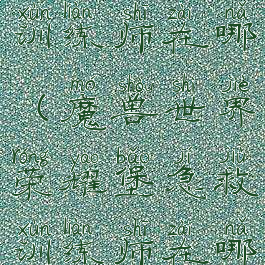 xùn liàn shī zài nǎ
训练师在哪
mó shòu shì jiè
(魔兽世界
róng yào bǎo jí jiù
荣耀堡急救
xùn liàn shī zài nǎ
训练师在哪